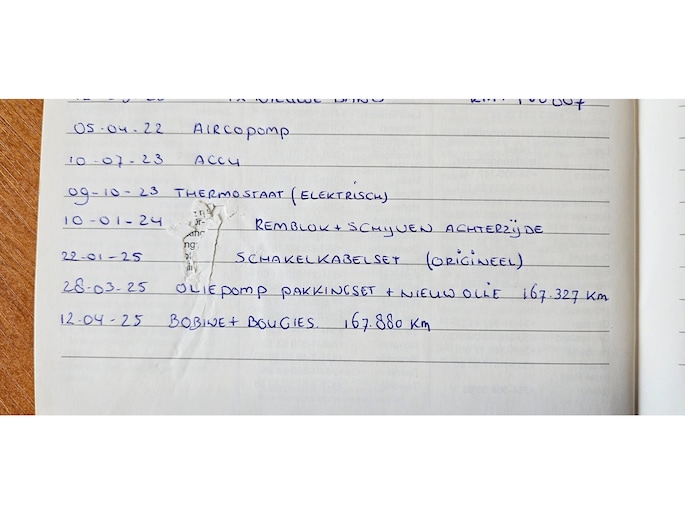 NIEUWE BAND
05-04-22 AIRCOPOMP
10-07-23 ACCU
09-10-23 THERMOSTAAT (ELEKTRISCH)
10-01-24 REMBLOK + SCHIJVEN ACHTERZIJDE
22-01-25 SCHAKELKABELSET (ORIGINEEL)
28-03-25 OLIEPOMP PAKKINGSET + NIEUW OLIE 167.327 KM
12-04-25 BOBINE + BOUGIES. 167.880 KM